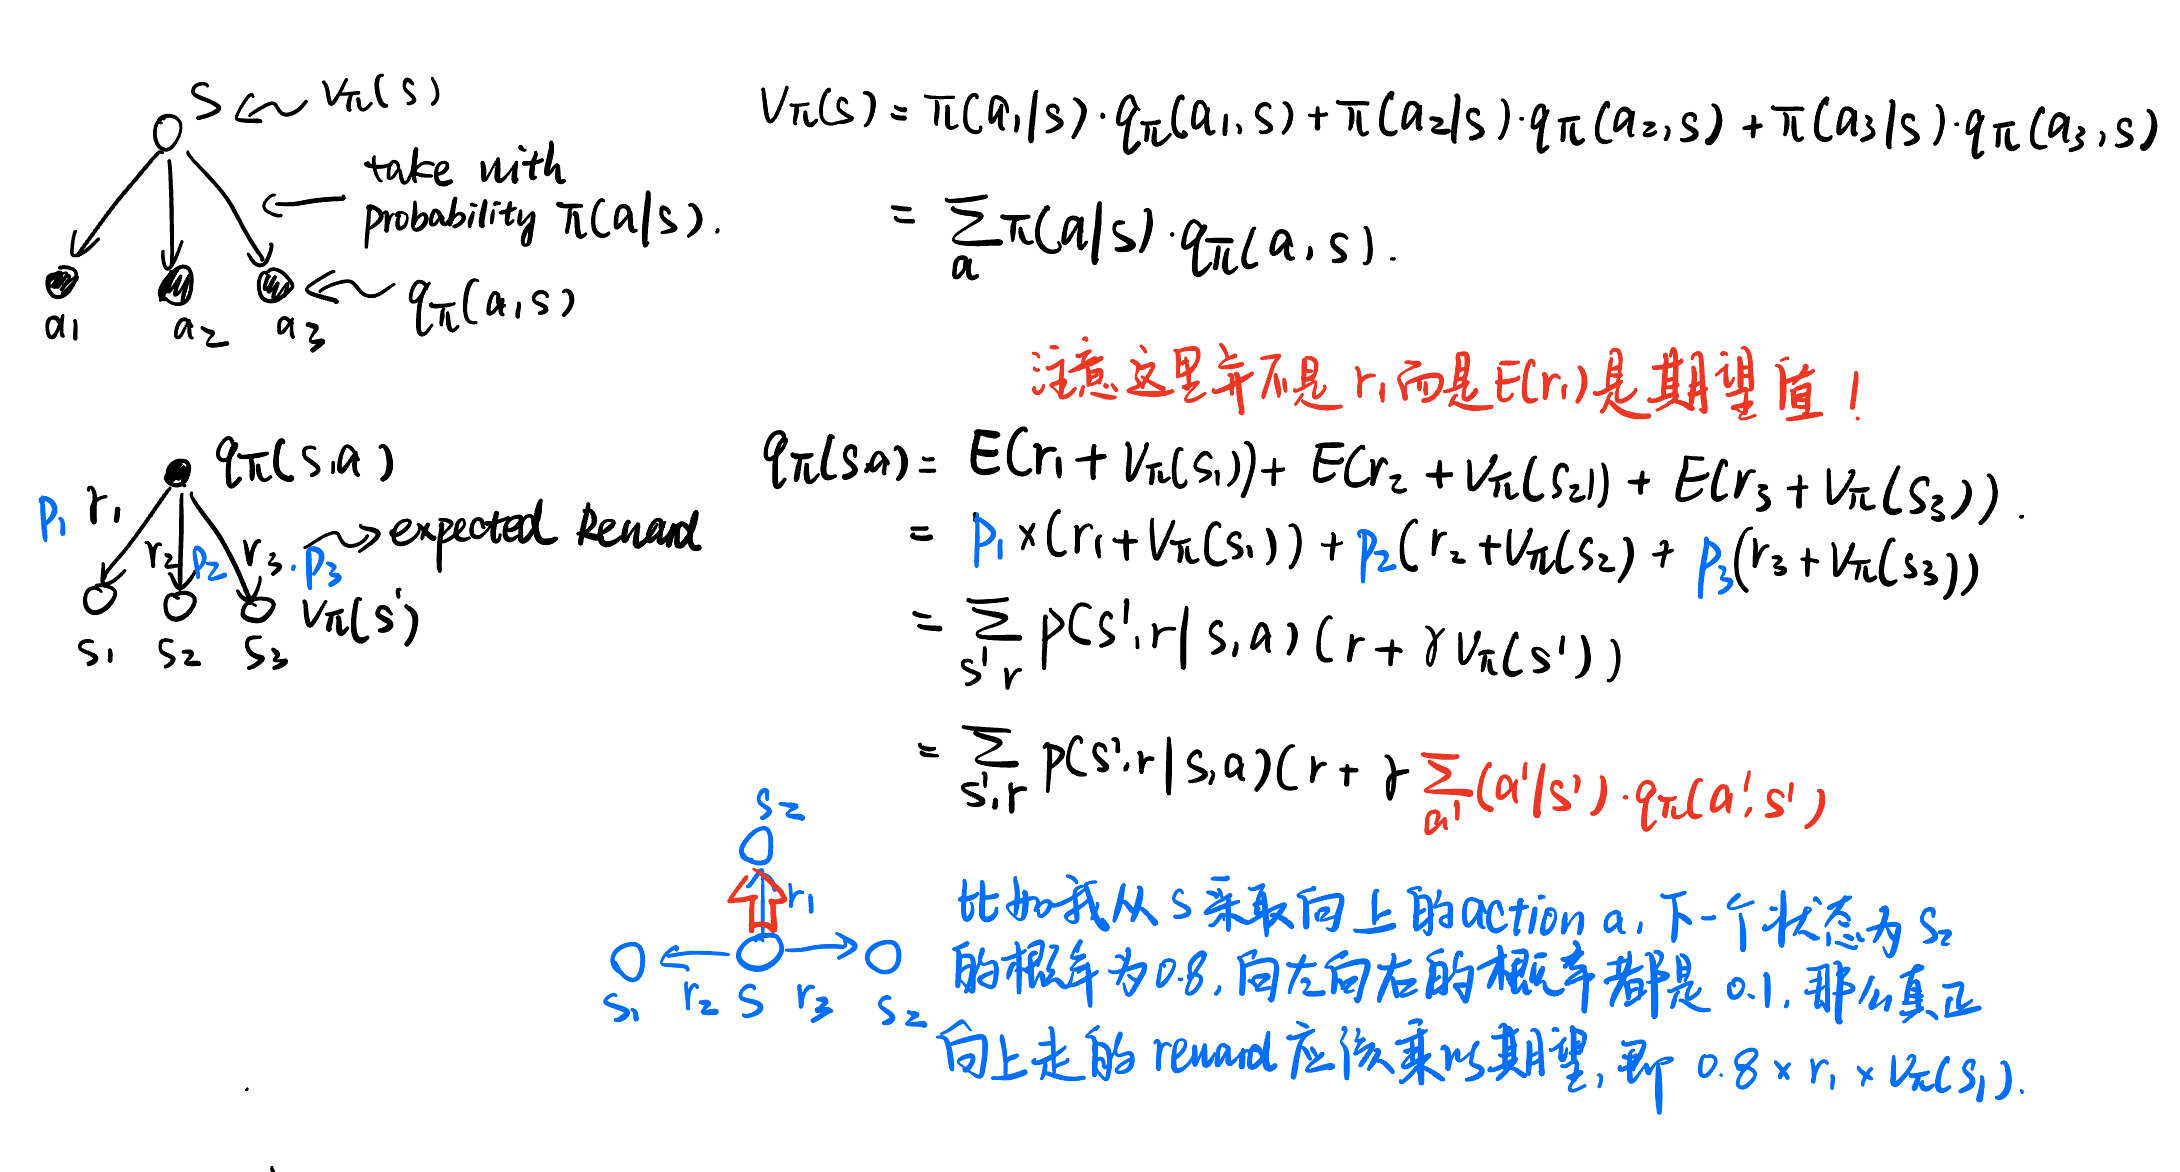 S ← Vπ(s)
take with
probability π(a|s).
a₁ a₂ a₃ ← qπ(a,s)
Vπ(s) = π(a₁|s)·qπ(a₁,s) + π(a₂|s)·qπ(a₂,s) + π(a₃|s)·qπ(a₃,s)
= Σₐ π(a|s)·qπ(a,s).
注意这里并不是 r₁ 而是 E(r₁) 是期望值!
qπ(s,a)
p₁ r₁ r₂ p₂ r₃·p₃ → expected Reward
s₁ s₂ s₃ Vπ(s')
qπ(s,a) = E(r₁ + Vπ(s₁)) + E(r₂ + Vπ(s₂)) + E(r₃ + Vπ(s₃)).
= p₁×(r₁+Vπ(s₁)) + p₂(r₂+Vπ(s₂) + p₃(r₃+Vπ(s₃))
= Σ s' r p(s',r|s,a) (r + γVπ(s'))
= Σ s',r p(s',r|s,a)(r + γ Σ a' (a'|s')·qπ(a',s')
s₂
r₁
s₁ r₂ s r₃ s₂
比如我从 s 采取向上的action a, 下一个状态为 s₂
的概率为0.8, 向左向右的概率都是 0.1, 那么真正
向上走的 reward 应该乘以期望, 即 0.8 × r₁ × Vπ(s₁).